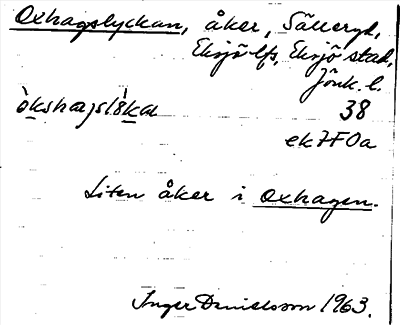 Oxhagslyckan, åker, Sälleryd,
Eksjö lfs, Eksjö stad,
Jönk. l.
òkshagslỳkan 38
ek7F0a
Liten åker i Oxhagen.
Inger Danielsson 1963.